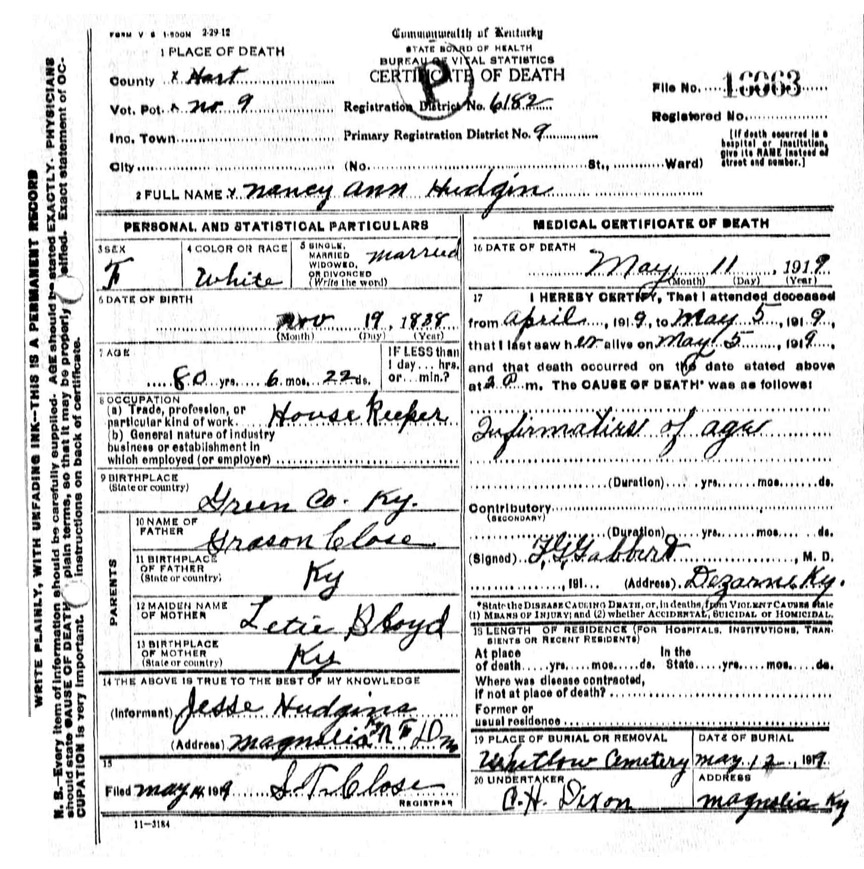 FORM V S 1-500M 2-29-12
Commonwealth of Kentucky
STATE BOARD OF HEALTH
BUREAU OF VITAL STATISTICS
CERTIFICATE OF DEATH
P
1 PLACE OF DEATH
County x Hart
Vot. Pct. x no 9
Inc. Town
City (No. St., Ward)
Registration District No. 6182
Primary Registration District No. 9
File No. 16063
Registered No.
[If death occurred in a
hospital or institution,
give its NAME instead of
street and number.]
2 FULL NAME x Nancy Ann Hudgin
PERSONAL AND STATISTICAL PARTICULARS
3 SEX
F
4 COLOR OR RACE
White
5 SINGLE,
MARRIED
WIDOWED,
OR DIVORCED
(Write the word)
Married
6 DATE OF BIRTH
Nov 19, 1838
(Month) (Day) (Year)
7 AGE
80 yrs. 6 mos. 22 ds.
IF LESS than
1 day... hrs.
or... min.?
8 OCCUPATION
(a) Trade, profession, or
particular kind of work. House Keeper
(b) General nature of industry
business or establishment in
which employed (or employer)
9 BIRTHPLACE
(State or country)
Green Co. Ky.
PARENTS
10 NAME OF
FATHER
Grason Close
11 BIRTHPLACE
OF FATHER
(State or country)
Ky
12 MAIDEN NAME
OF MOTHER
Letie Bloyd
13 BIRTHPLACE
OF MOTHER
(State or country)
Ky
14 THE ABOVE IS TRUE TO THE BEST OF MY KNOWLEDGE
(Informant) Jesse Hudgins
(Address) Magnolia Ky
15
Filed May 14 1919 S. T. Close
REGISTRAR
11—3184
MEDICAL CERTIFICATE OF DEATH
16 DATE OF DEATH
May 11, 1919
(Month) (Day) (Year)
17 I HEREBY CERTIFY, That I attended deceased
from April, 1919, to May 5, 1919,
that I last saw her alive on May 5, 1919,
and that death occurred on the date stated above
at m. The CAUSE OF DEATH* was as follows:
Infirmaties of age
(Duration) yrs. mos. ds.
Contributory
(SECONDARY)
(Duration) yrs. mos. ds.
(Signed) F. G. Gabbert, M. D.
191 (Address) Dezarn Ky.
*State the DISEASE CAUSING DEATH, or, in deaths, from VIOLENT CAUSES state
(1) MEANS OF INJURY; and (2) whether ACCIDENTAL, SUICIDAL or HOMICIDAL.
18 LENGTH OF RESIDENCE (FOR HOSPITALS, INSTITUTIONS, TRAN-
SIENTS OR RECENT RESIDENTS)
At place In the
of death yrs. mos. ds. State yrs. mos. ds.
Where was disease contracted,
If not at place of death?
Former or
usual residence
19 PLACE OF BURIAL OR REMOVAL
Whitlow Cemetery
DATE OF BURIAL
May 12, 1919
20 UNDERTAKER
C. H. Dixon
ADDRESS
Magnolia Ky
WRITE PLAINLY, WITH UNFADING INK—THIS IS A PERMANENT RECORD
N. B.—Every item of information should be carefully supplied. AGE should be stated EXACTLY. PHYSICIANS
should state CAUSE OF DEATH plain terms, so that it may be properly Exact statement of OC-
CUPATION is very important. instructions on back of certificate.